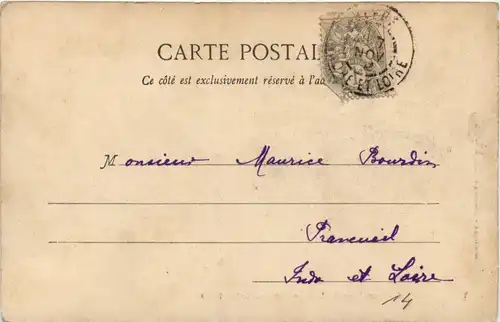 CARTE POSTAL
Ce côté est exclusivement réservé à l'a
NOV
ET LOIRE
Monsieur Maurice Bourdin
Francueil
Indre et Loire
14